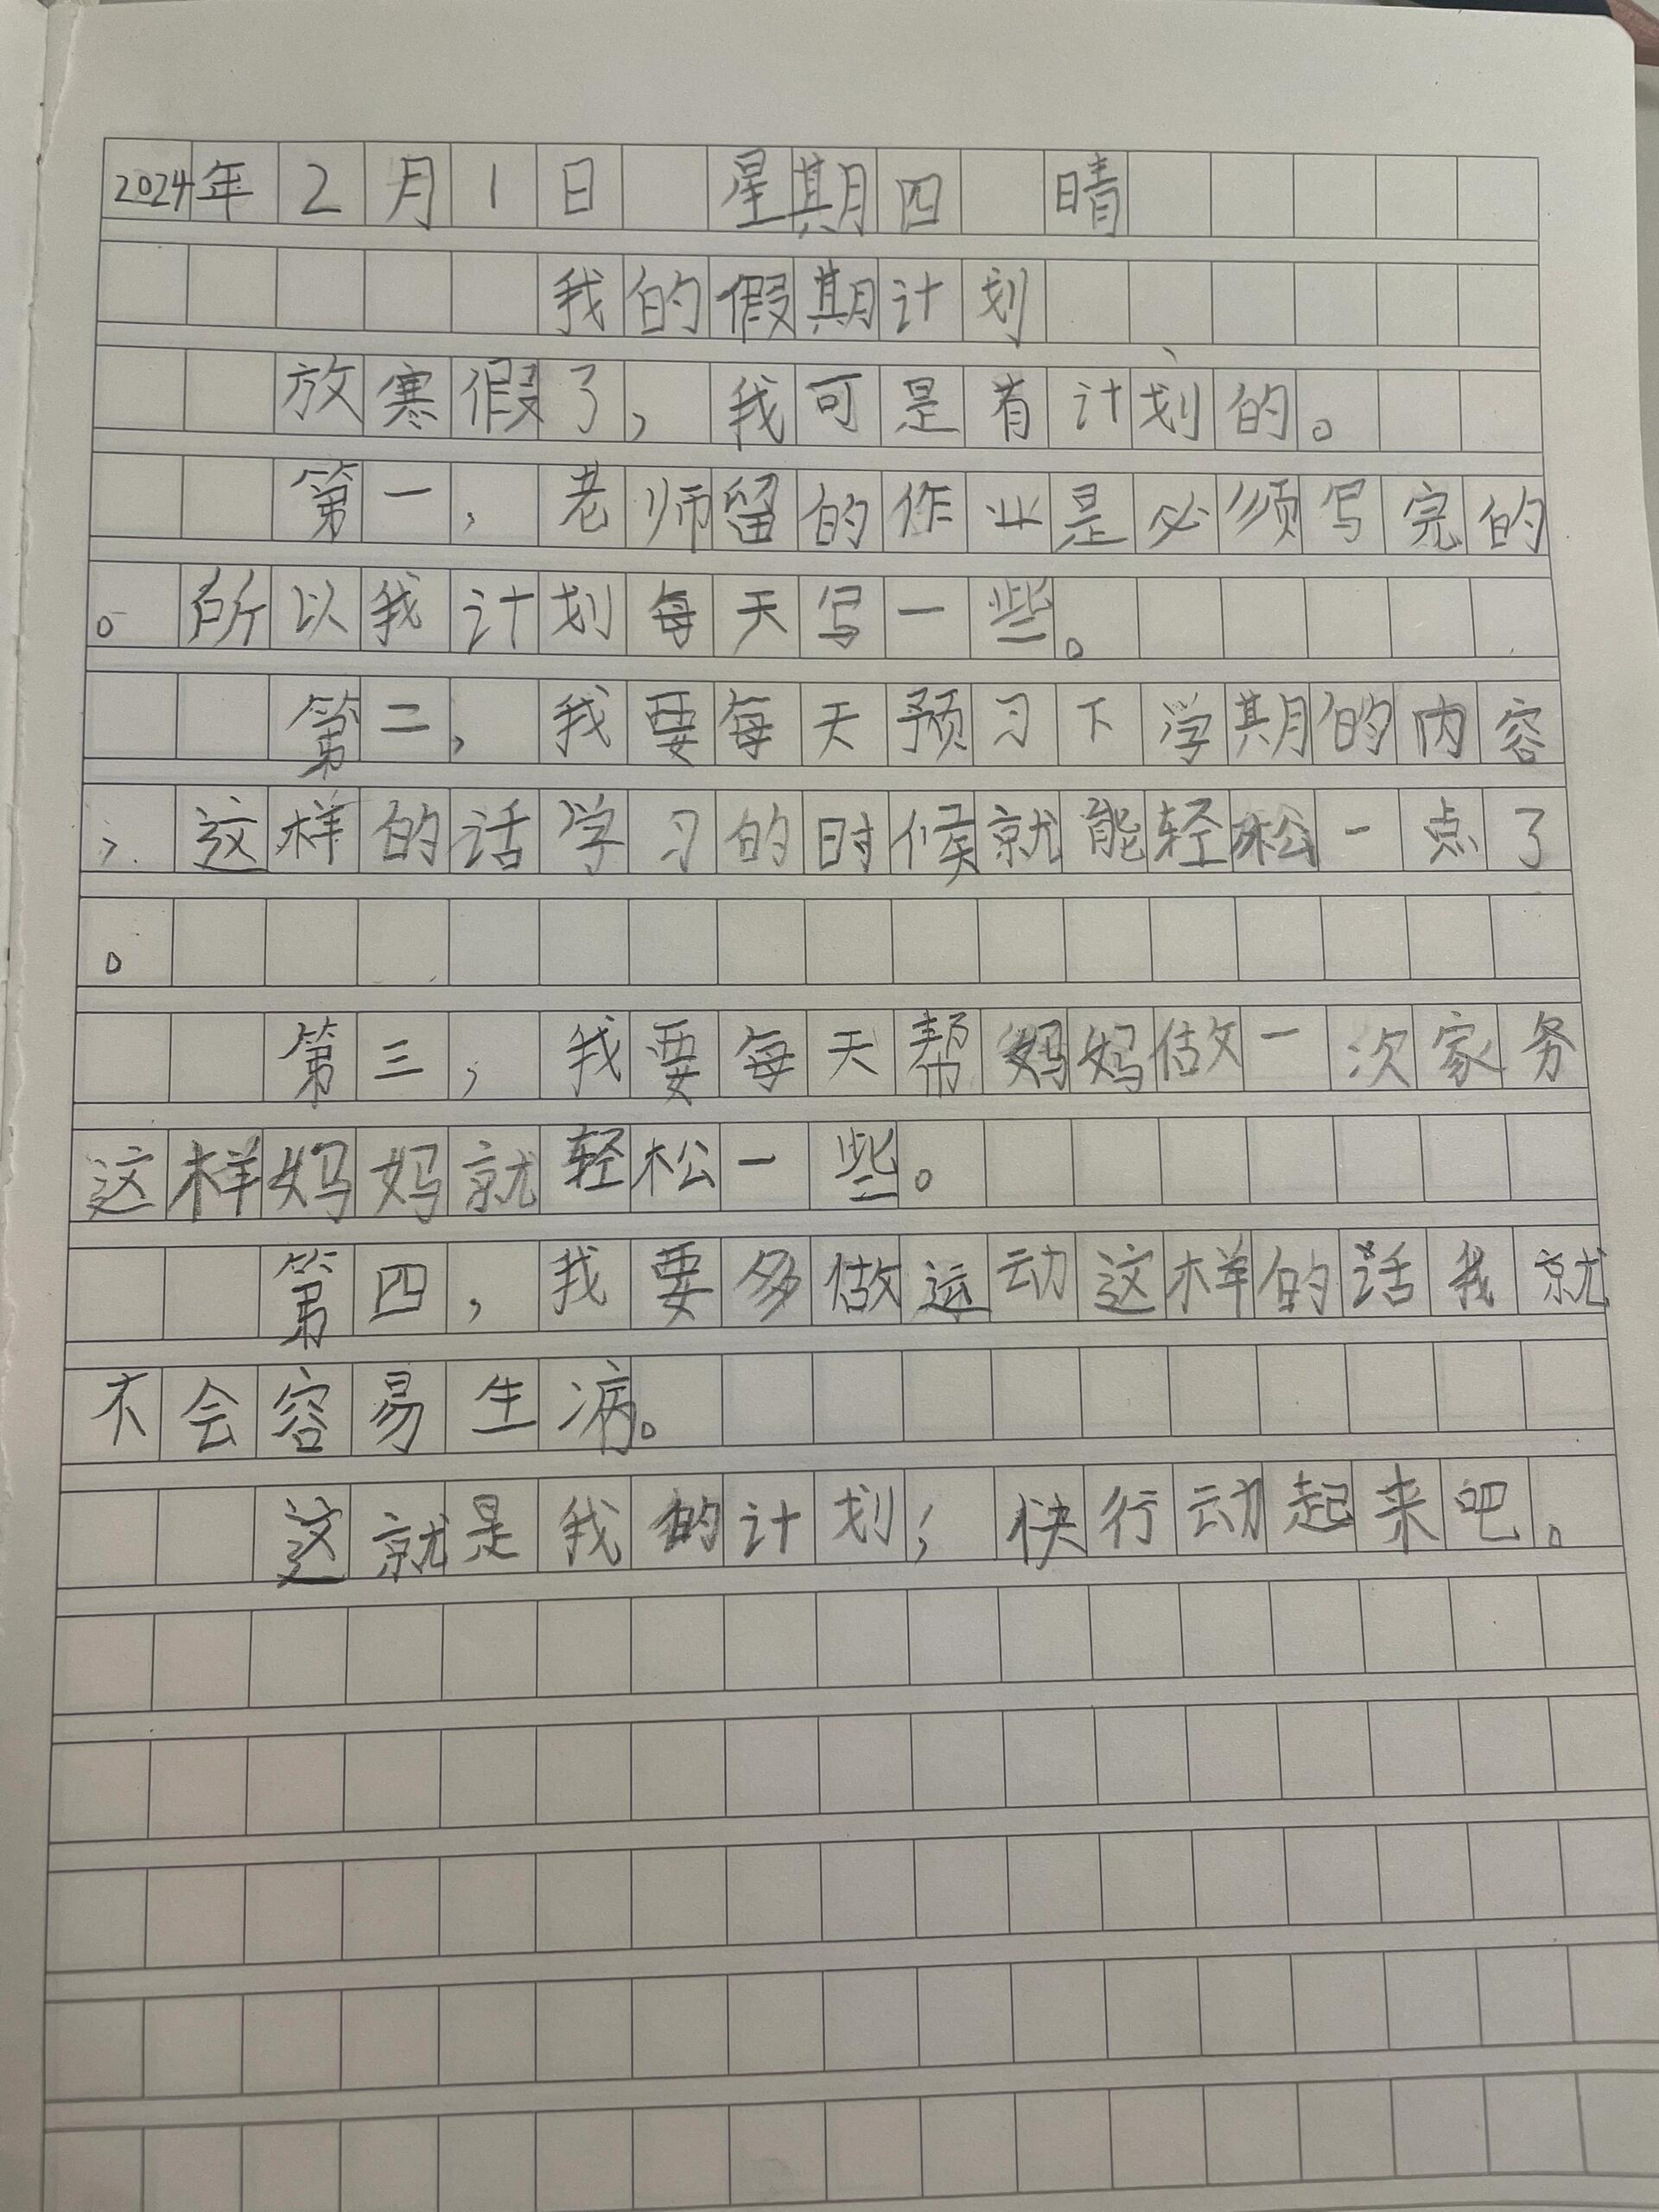 2024年2月1日 星期四 晴
我的假期计划
放寒假了,我可是有计划的。
第一,老师留的作业是必须写完的
。所以我计划每天写一些。
第二,我要每天预习下学期的内容
,这样的话学习的时候就能轻松一点了
。
第三,我要每天帮妈妈做一次家务
这样妈妈就轻松一些。
第四,我要多做运动这样的话我就
不会容易生病。
这就是我的计划,快行动起来吧。